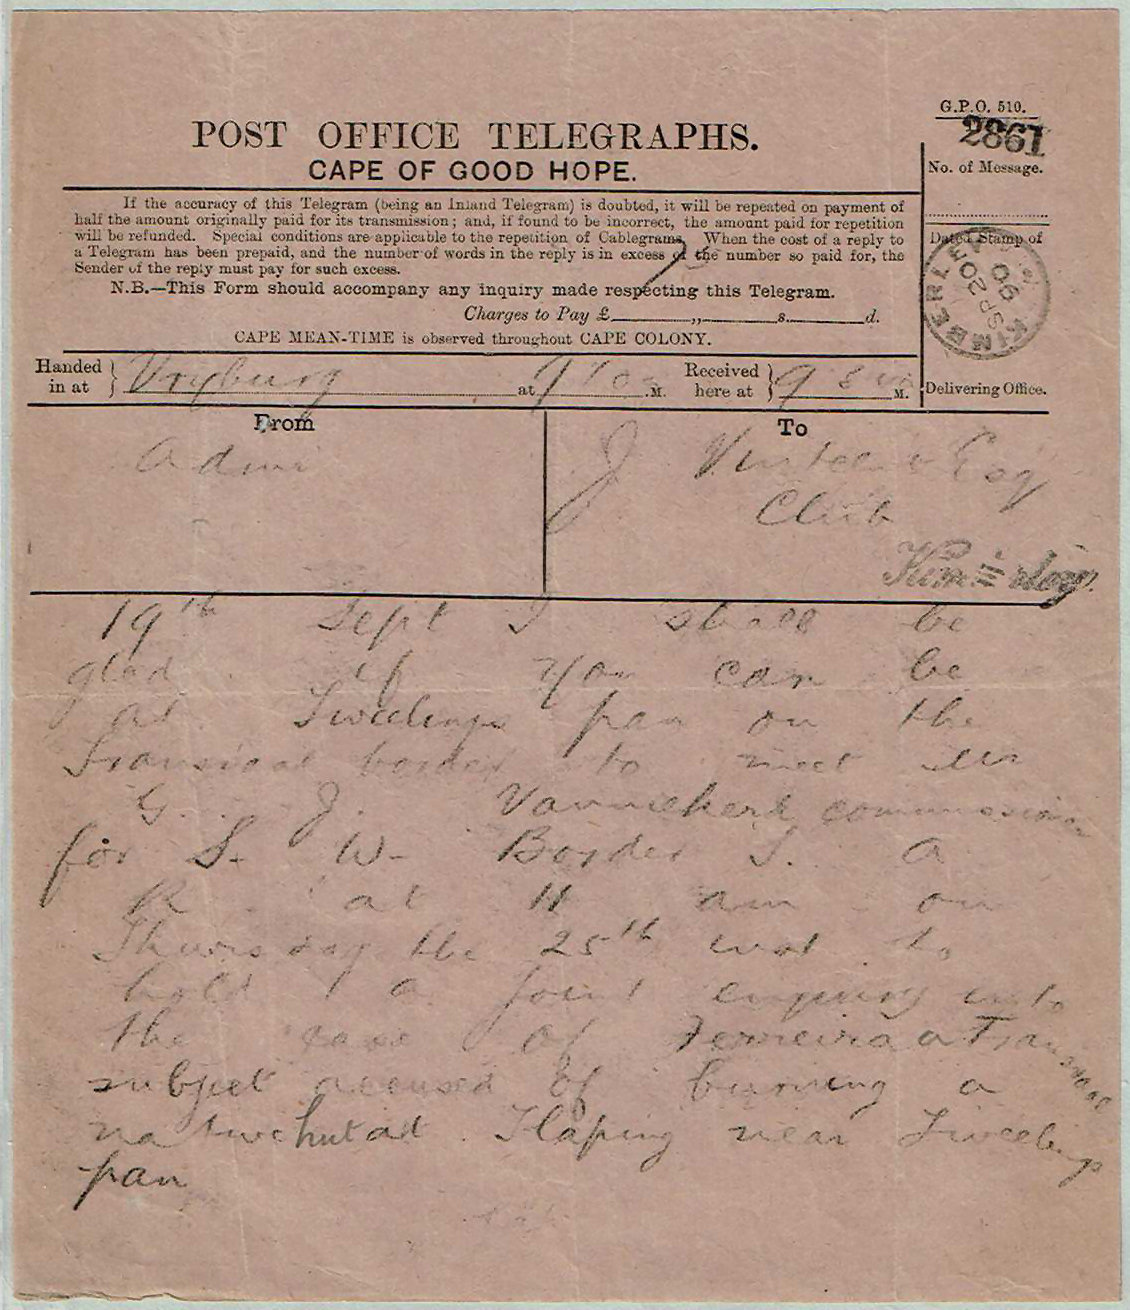 G.P.O. 510.
2861
POST OFFICE TELEGRAPHS.
CAPE OF GOOD HOPE.
No. of Message.
If the accuracy of this Telegram (being an Inland Telegram) is doubted, it will be repeated on payment of
half the amount originally paid for its transmission; and, if found to be incorrect, the amount paid for repetition
will be refunded. Special conditions are applicable to the repetition of Cablegrams. When the cost of a reply to
a Telegram has been prepaid, and the number of words in the reply is in excess of the number so paid for, the
Sender of the reply must pay for such excess.
N.B.—This Form should accompany any inquiry made respecting this Telegram.
Charges to Pay £ ,, s. d.
CAPE MEAN-TIME is observed throughout CAPE COLONY.
Dated Stamp of
SP 20
90
Delivering Office.
Handed in at } Vryburg at .M. Received here at } 9 M.
From
To
Admr
J Esq
Club
19th Sept I shall be
glad if you can be
at pan on the
Transvaal border to meet Mr
G. J. Vanniekerk commissioner
for S. W. Border S. A
R at 11 am on
Thursday the 25th inst to
hold a joint enquiry into
the case of Ferreira a Transvaal
subject accused of burning a
native hut at Tlaping near
pan